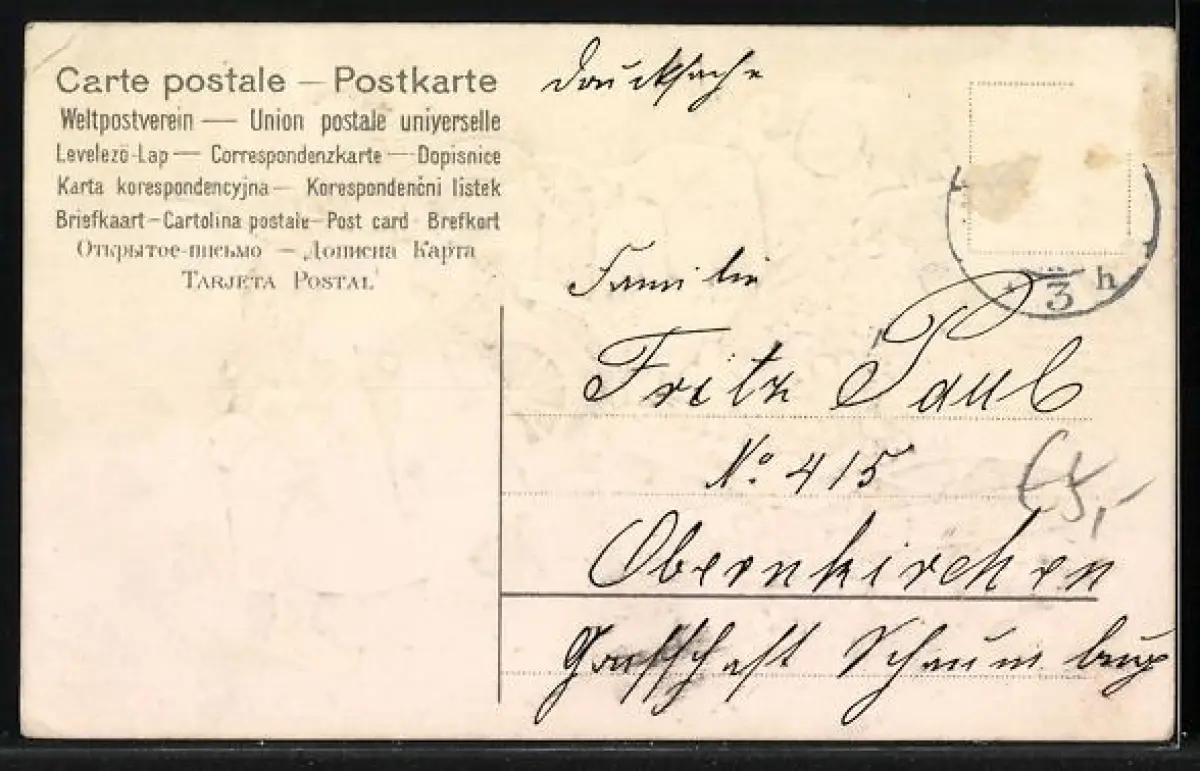 Carte postale — Postkarte
Weltpostverein — Union postale universelle
Levelező-Lap — Correspondenzkarte — Dopisnice
Karta korespondencyjna — Korespondenčni listek
Briefkaart – Cartolina postale – Post card - Brefkort
Открытое-письмо — Дописна Карта
TARJETA POSTAL
Drucksache
3 h
Familie
Fritz Paul
No 415
Obernkirchen
Grafschaft Schaumburg